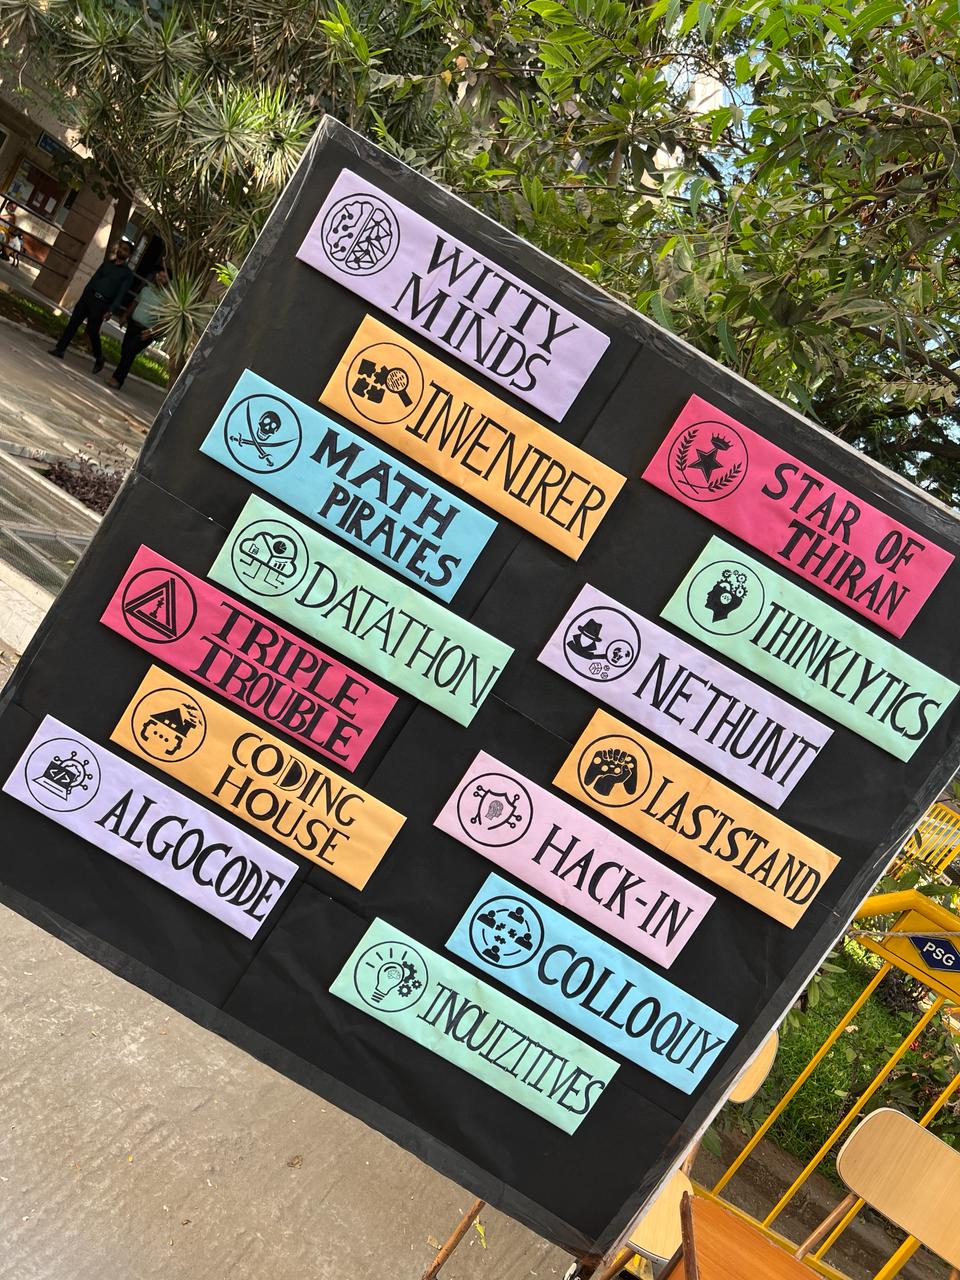 WITTY
MINDS
INVENIRER
MATH
PIRATES
DATATHON
TRIPLE
TROUBLE
CODING
HOUSE
ALGOCODE
STAR OF
THIRAN
THINKLYTICS
NETHUNT
LASTSTAND
HACK-IN
COLLOQUY
INQUIZITIVES
PSG